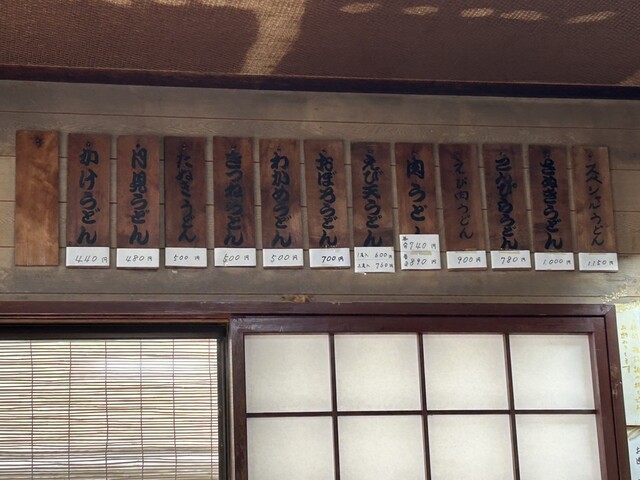 かけうどん
440円
月見うどん
480円
たぬきうどん
500円
きつねうどん
500円
わかめうどん
500円
おぼろうどん
700円
えび天うどん
1尾入 600円
2尾入 760円
肉うどん
740円
890円
えび肉うどん
900円
780円
1000円
スペシャルうどん
1150円